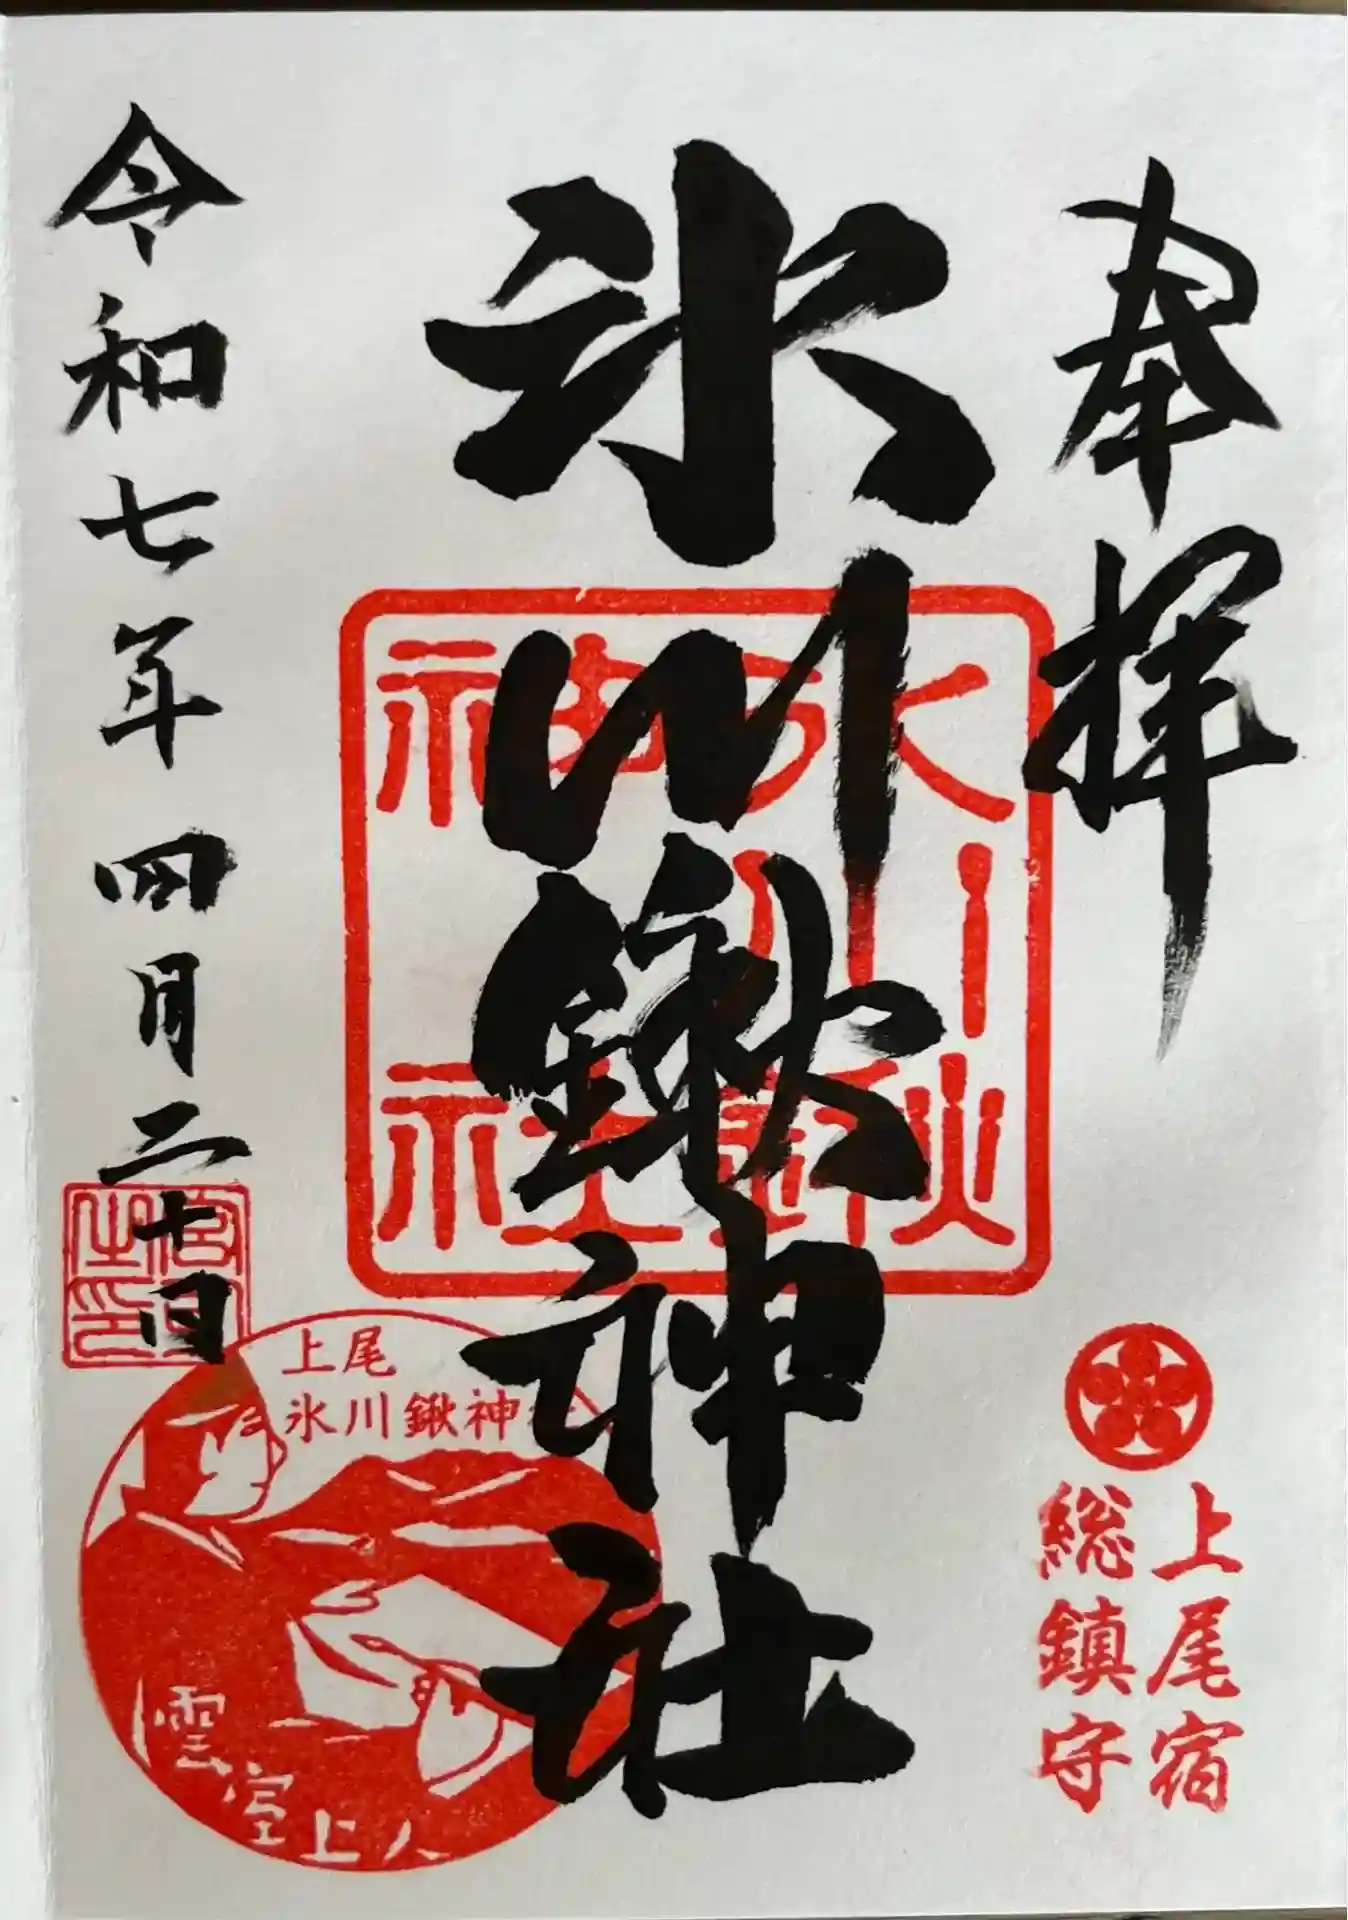 奉拝
上尾宿
総鎮守
氷川鍬神社
氷川鍬
神社
令和七年四月二十日
宮司
之印
上尾
氷川鍬神社
雲室上人